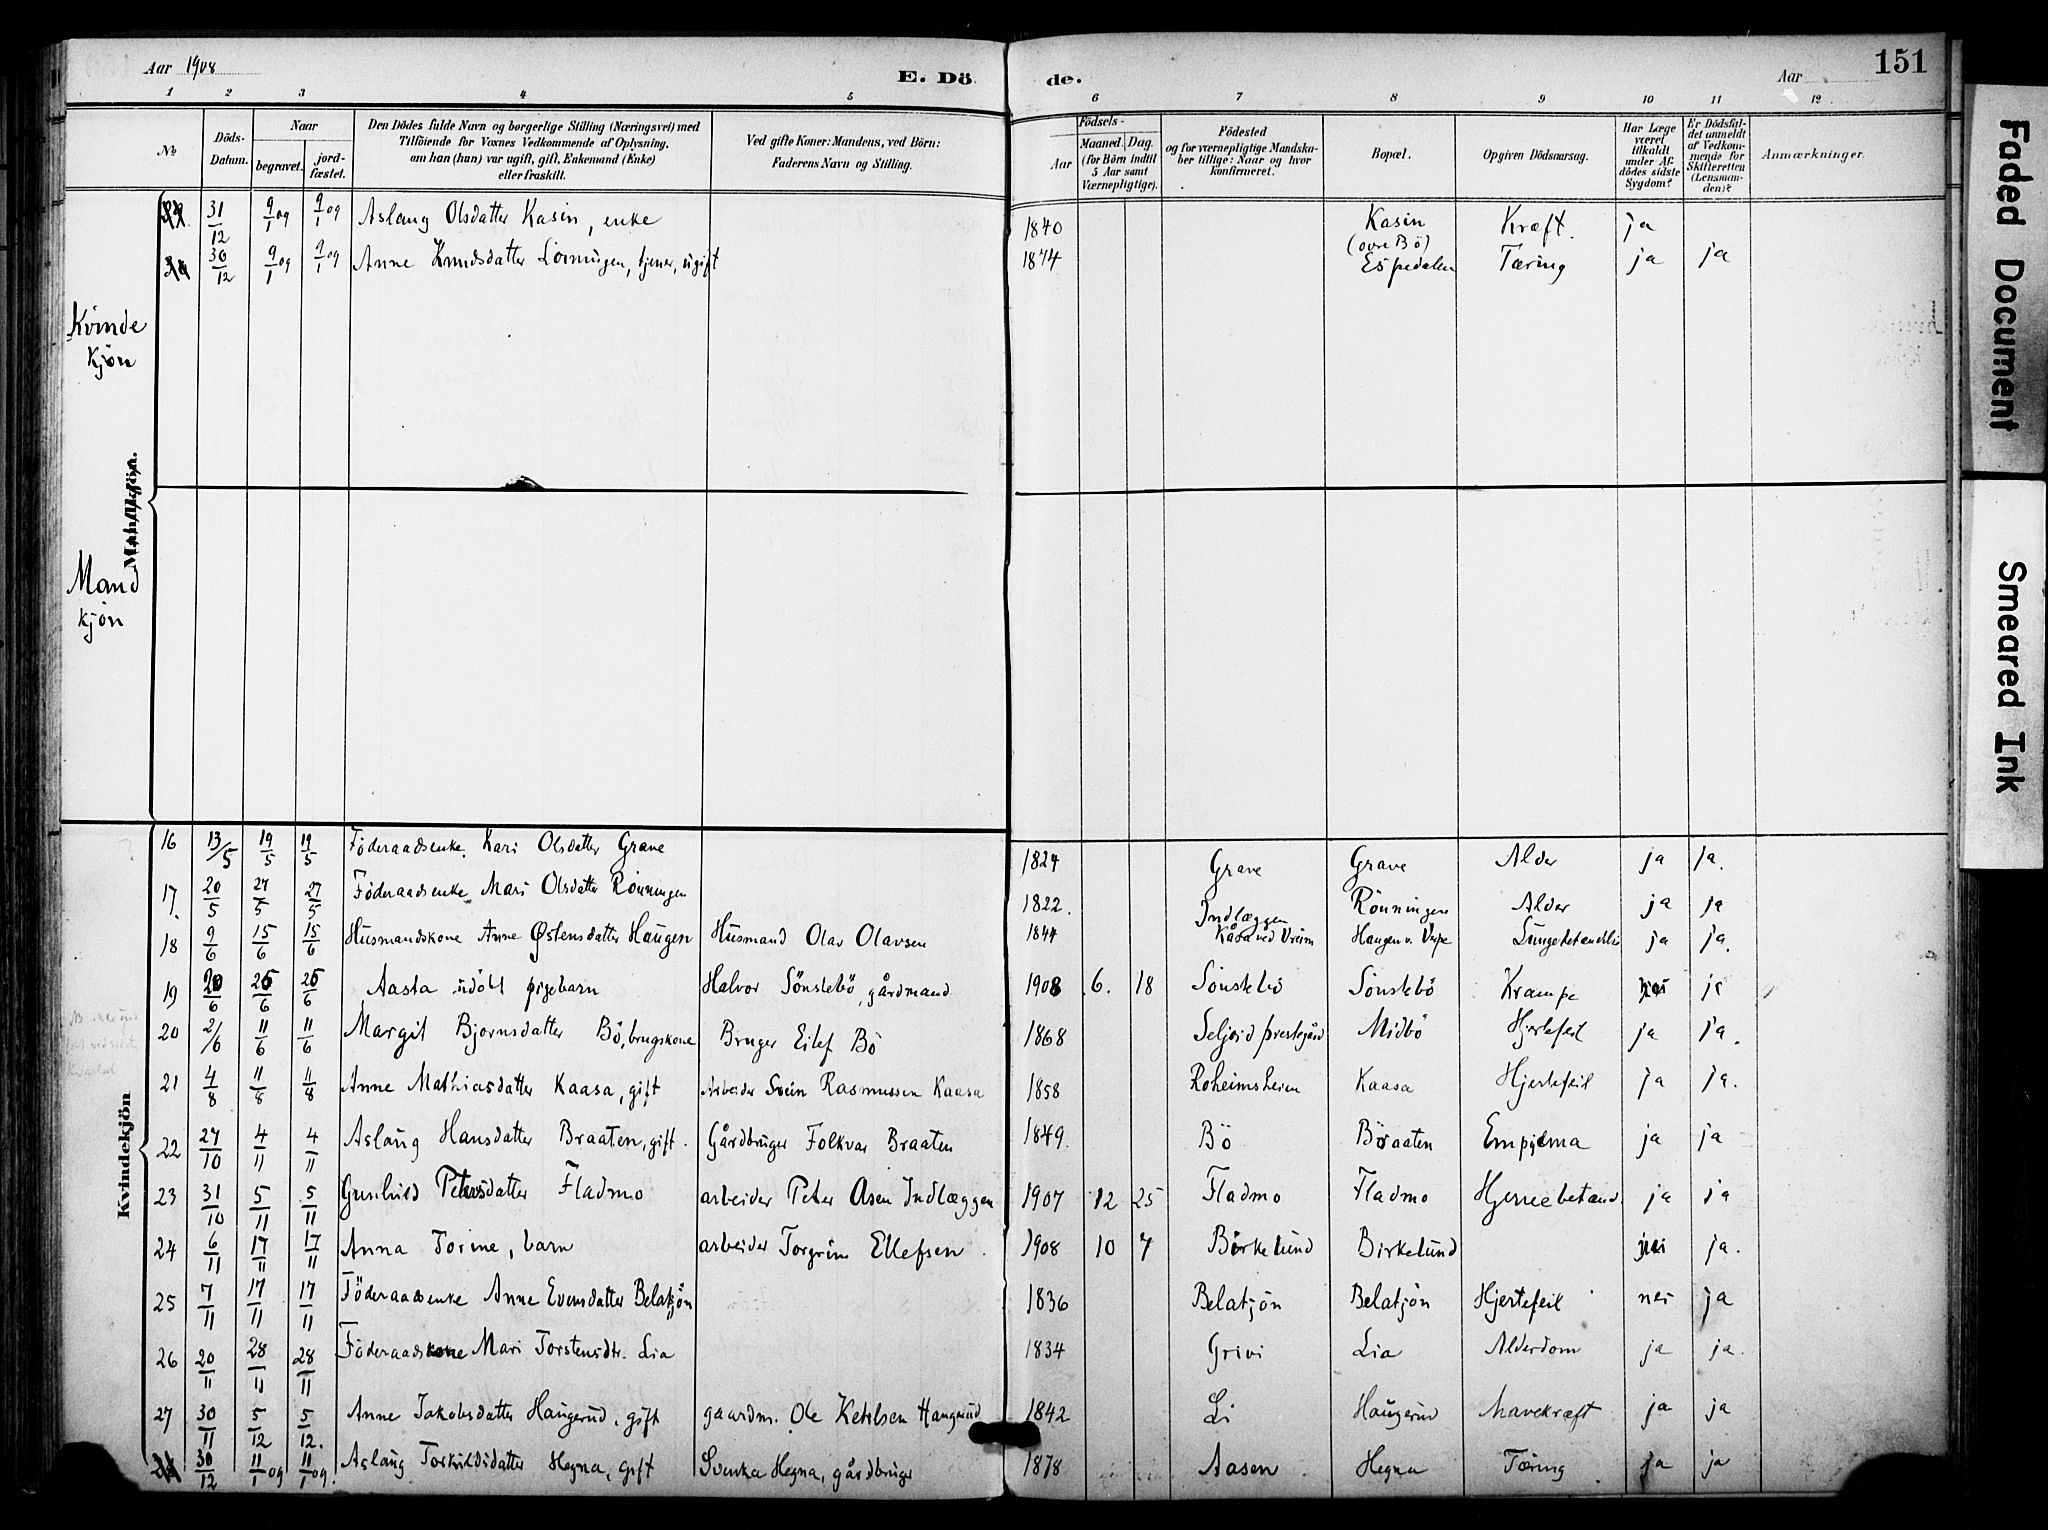 Aar 1908 E. Dö de. Aar 151
1 2 3 4 5 6 7 8 9 10 11 12
No.
Döds-Datum.
Naar
begravet.
jord-fæstet.
Den Dödes fulde Navn og borgerlige Stilling (Næringsvei) med
Tilföiende for Voxnes Vedkommende af Oplysning,
om han (hun) var ugift, gift, Enkemand (Enke)
eller fraskilt.
Ved gifte Koner: Mandens, ved Börn:
Faderens Navn og Stilling.
Födsels-
Aar
Maaned. Dag.
(for Börn indtil
5 Aar samt
Værnepligtige).
Födested
og for værnepligtige Mandska-
ber tillige: Naar og hvor
konfirmeret.
Bopæl.
Opgiven Dödsaarsag.
Har Læge
været
tilkaldt
under Af-
dödes sidste
Sygdom?
Er Dödsfal-
det anmeldt
af Vedkom-
mende for
Skifteretten
(Lensman-
den)?
Anmærkninger.
31/12 9/1 09 9/1 09 Aslaug Olsdatter Kasin, enke 1840 Kasin (övre Bö) Kræft. ja
30/12 9/1 09 9/1 09 Anne Knudsdatter tjener, ugift 1874 Espedalen Tæring ja ja
Kvinde
kjön
Mandkjön.
Mand
kjön
Kvindekjön
16 13/5 19/5 19/5 Föderaadsenke Kari Olsdatter Grave 1824 Grave Grave Alder ja ja.
17. 20/5 27/5 27/5 Föderaadsenke Mari Olsdatter Rönningen 1822. Indlæggen Rönningen Alder ja ja
18 9/6 15/6 15/6 Husmandskone Anne Østensdatter Haugen Husmand Olav Olavsen 1844 Kåsa ved Vreim Haugen v. ja ja.
19 20/6 26/6 26/6 Aasta udöbt pigebarn Halvor Sönstebö, gårdmand 1908 6. 18 Sönstebö Sönstebö Krampe nei ja
20 2/6 11/6 11/6 Margit Bjornsdatter Bö, brugskone Bruger Eilef Bö 1868 Seljord prestegård Midbö Hjertefeil ja ja.
21 4/8 11/8 11/8 Anne Mathiasdatter Kaasa, gift Arbeider Svein Rasmussen Kaasa 1858 Roheimsheien Kaasa Hjertefeil ja ja.
22 27/10 4/11 4/11 Aslaug Hansdatter Braaten, gift. Gårdbruger Folkvar Braaten 1849. Bö Braaten Empyema ja ja
23 31/10 5/11 5/11 Gunhild Petersdatter Fladmo arbeider Peter Asen Indlæggen 1907 12 25 Fladmo Fladmo Hjernebetænd. ja ja
24 6/11 17/11 17/11 Anna Torine, barn arbeider Torgrim Ellefsen. 1908 10 7 Birkelund Birkelund nei ja.
25 7/11 17/11 17/11 Föderaadsenke Anne Evensdatter Belatjön 1836 Belatjön Belatjön Hjertefeil nei ja
26 20/11 28/11 28/11 Föderaadskone Mari Torstensdtr. Lia 1834 Grivi Lia Alderdom ja ja.
27 30/11 5/12 5/12. Anne Jakobsdatter Haugerud, gift gaardm. Ole Ketilsen Haugerud 1842 Li Haugerud Mavekræft ja ja
30/12 11/1 09 11/1 09. Aslaug Torkildsdatter Hegna, gift Svenka Hegna, gårdbruger 1878 Aasen Hegna Tæring ja ja
Faded Document
Smeared Ink